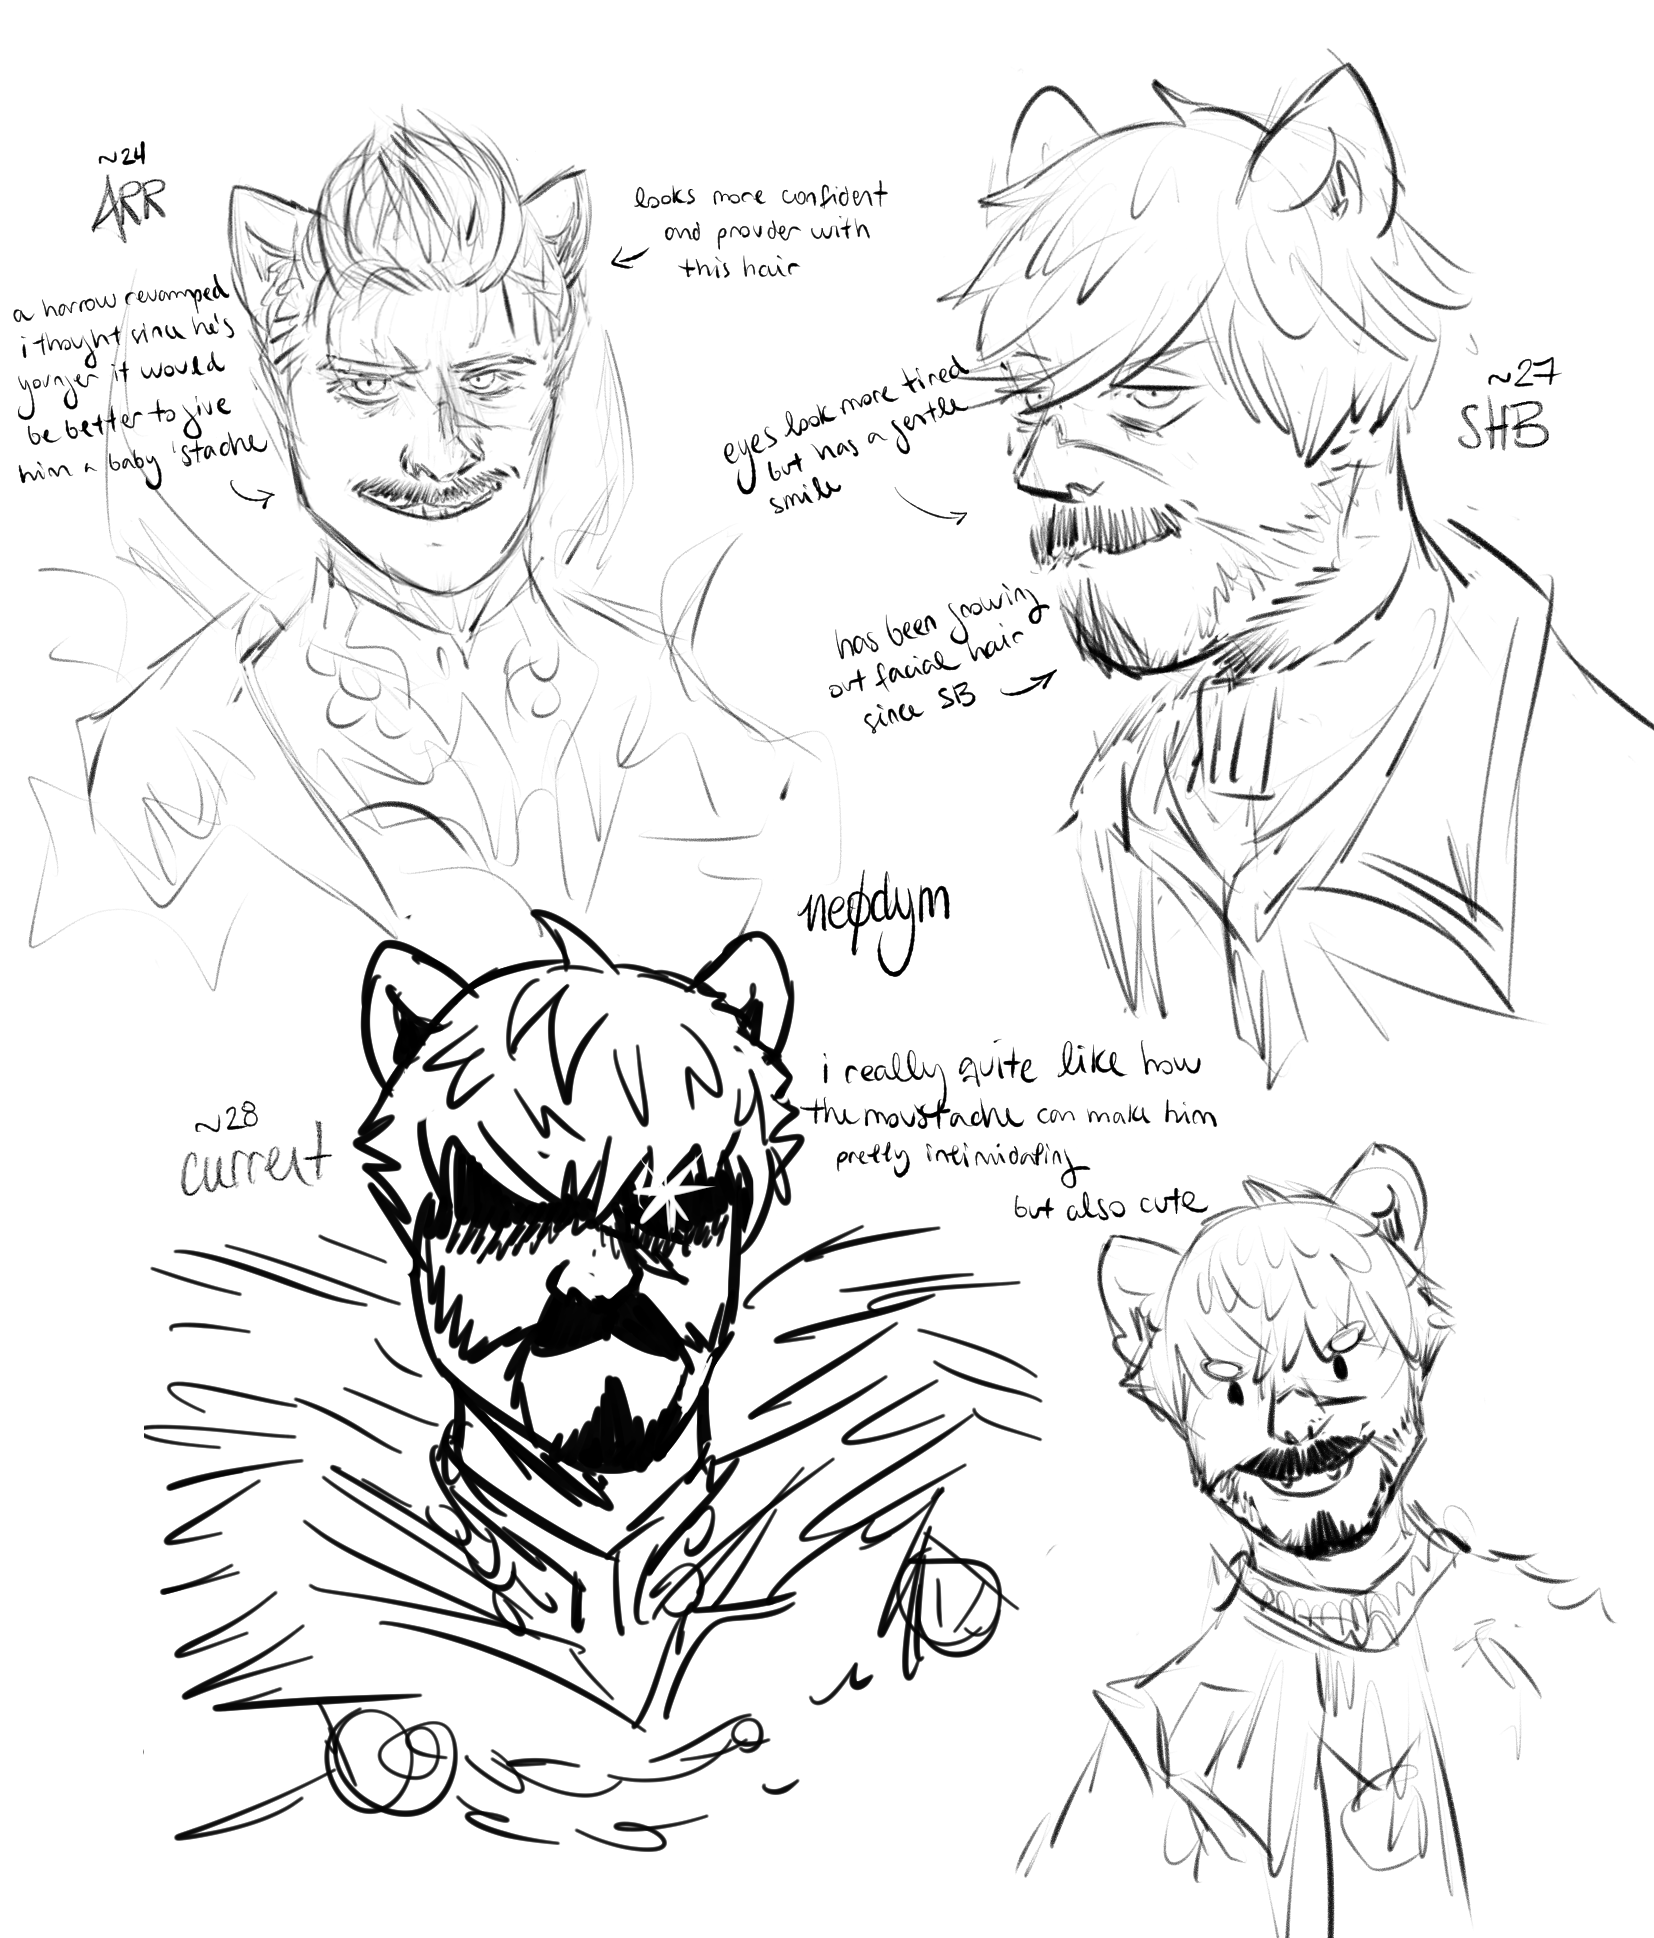 ~24
ARR
looks more confident
and prouder with
this hair
a harrow revamped
i thought since he's
younger it would
be better to give
him a baby 'stache
~27
SHB
eyes look more tired
but has a gentle
smile
has been growing
out facial hair
since SB
neødym
~28
current
i really quite like how
the moustache can make him
pretty intimidating
but also cute